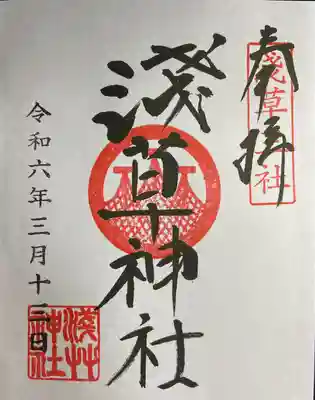 奉拝
浅草社
淺草神社
令和六年三月十三日
淺草神社